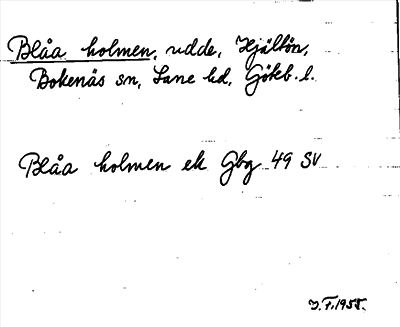 Blåa holmen, udde, Hjältön,
Bokenäs sn, Lane hd, Göteb. l.
Blåa holmen ek Gbg 49 SV
J.F. 1955.